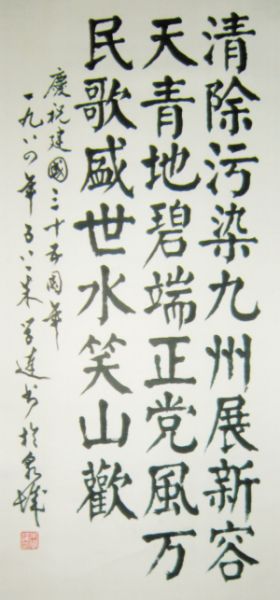 清除污染九州展新容
天青地碧端正党風万
民歌盛世水笑山歡
慶祝建國三十五周年
一九八四年
書於泉城